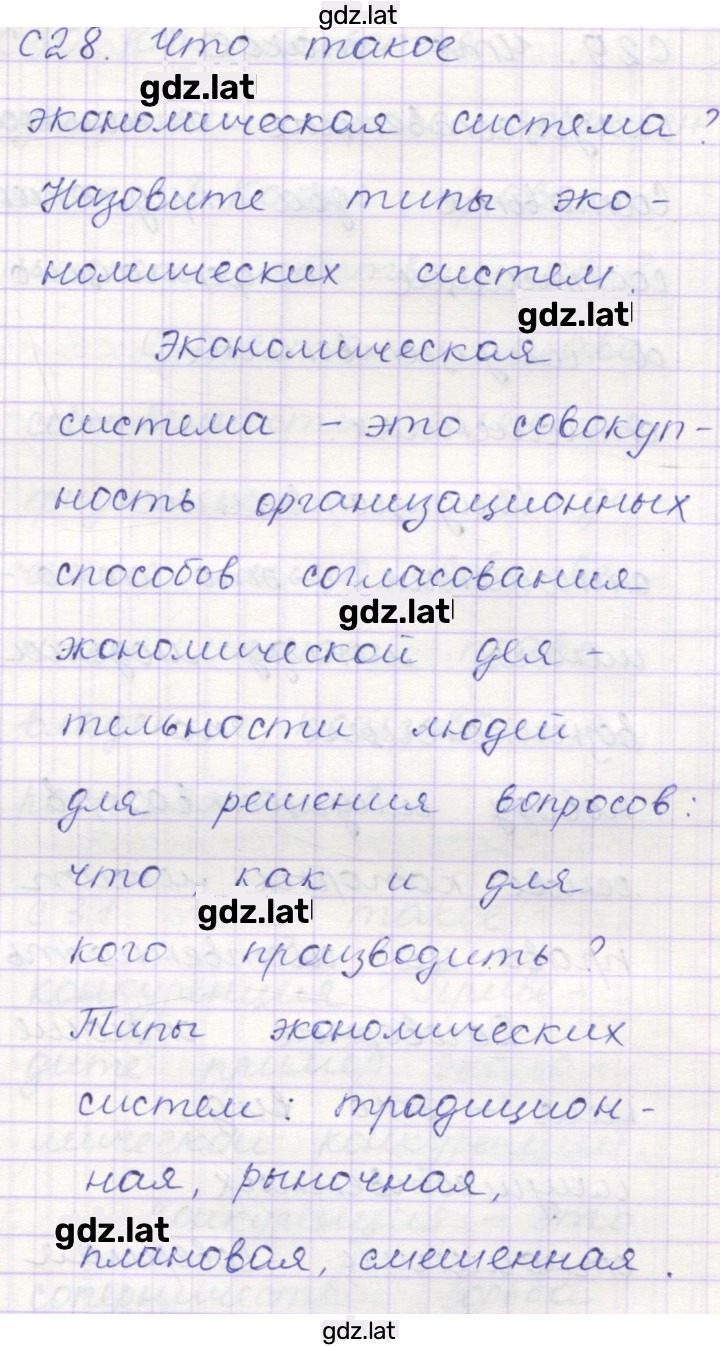 gdz.lat
С28. Что такое
gdz.lat
экономическая система?
Назовите типы эко-
номических систем.
gdz.lat
Экономическая
система – это совокуп-
ность организационных
способов согласования
gdz.lat
экономической дея-
тельности людей
для решения вопросов:
что, как и для
gdz.lat
кого производить?
Типы экономических
систем: традицион-
ная, рыночная,
gdz.lat
плановая, смешенная.
gdz.lat